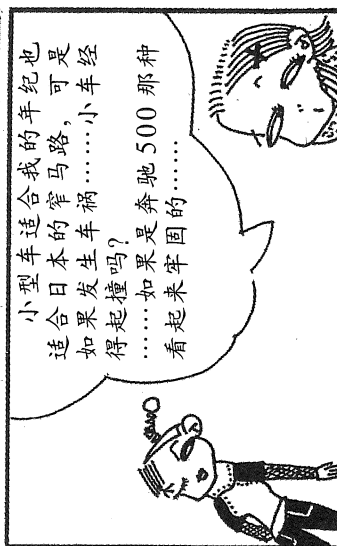 小型车适合我的年纪也
适合日本的窄马路，可是
如果发生车祸……小车经
得起撞吗？
……如果是奔驰500那种
看起来牢固的……